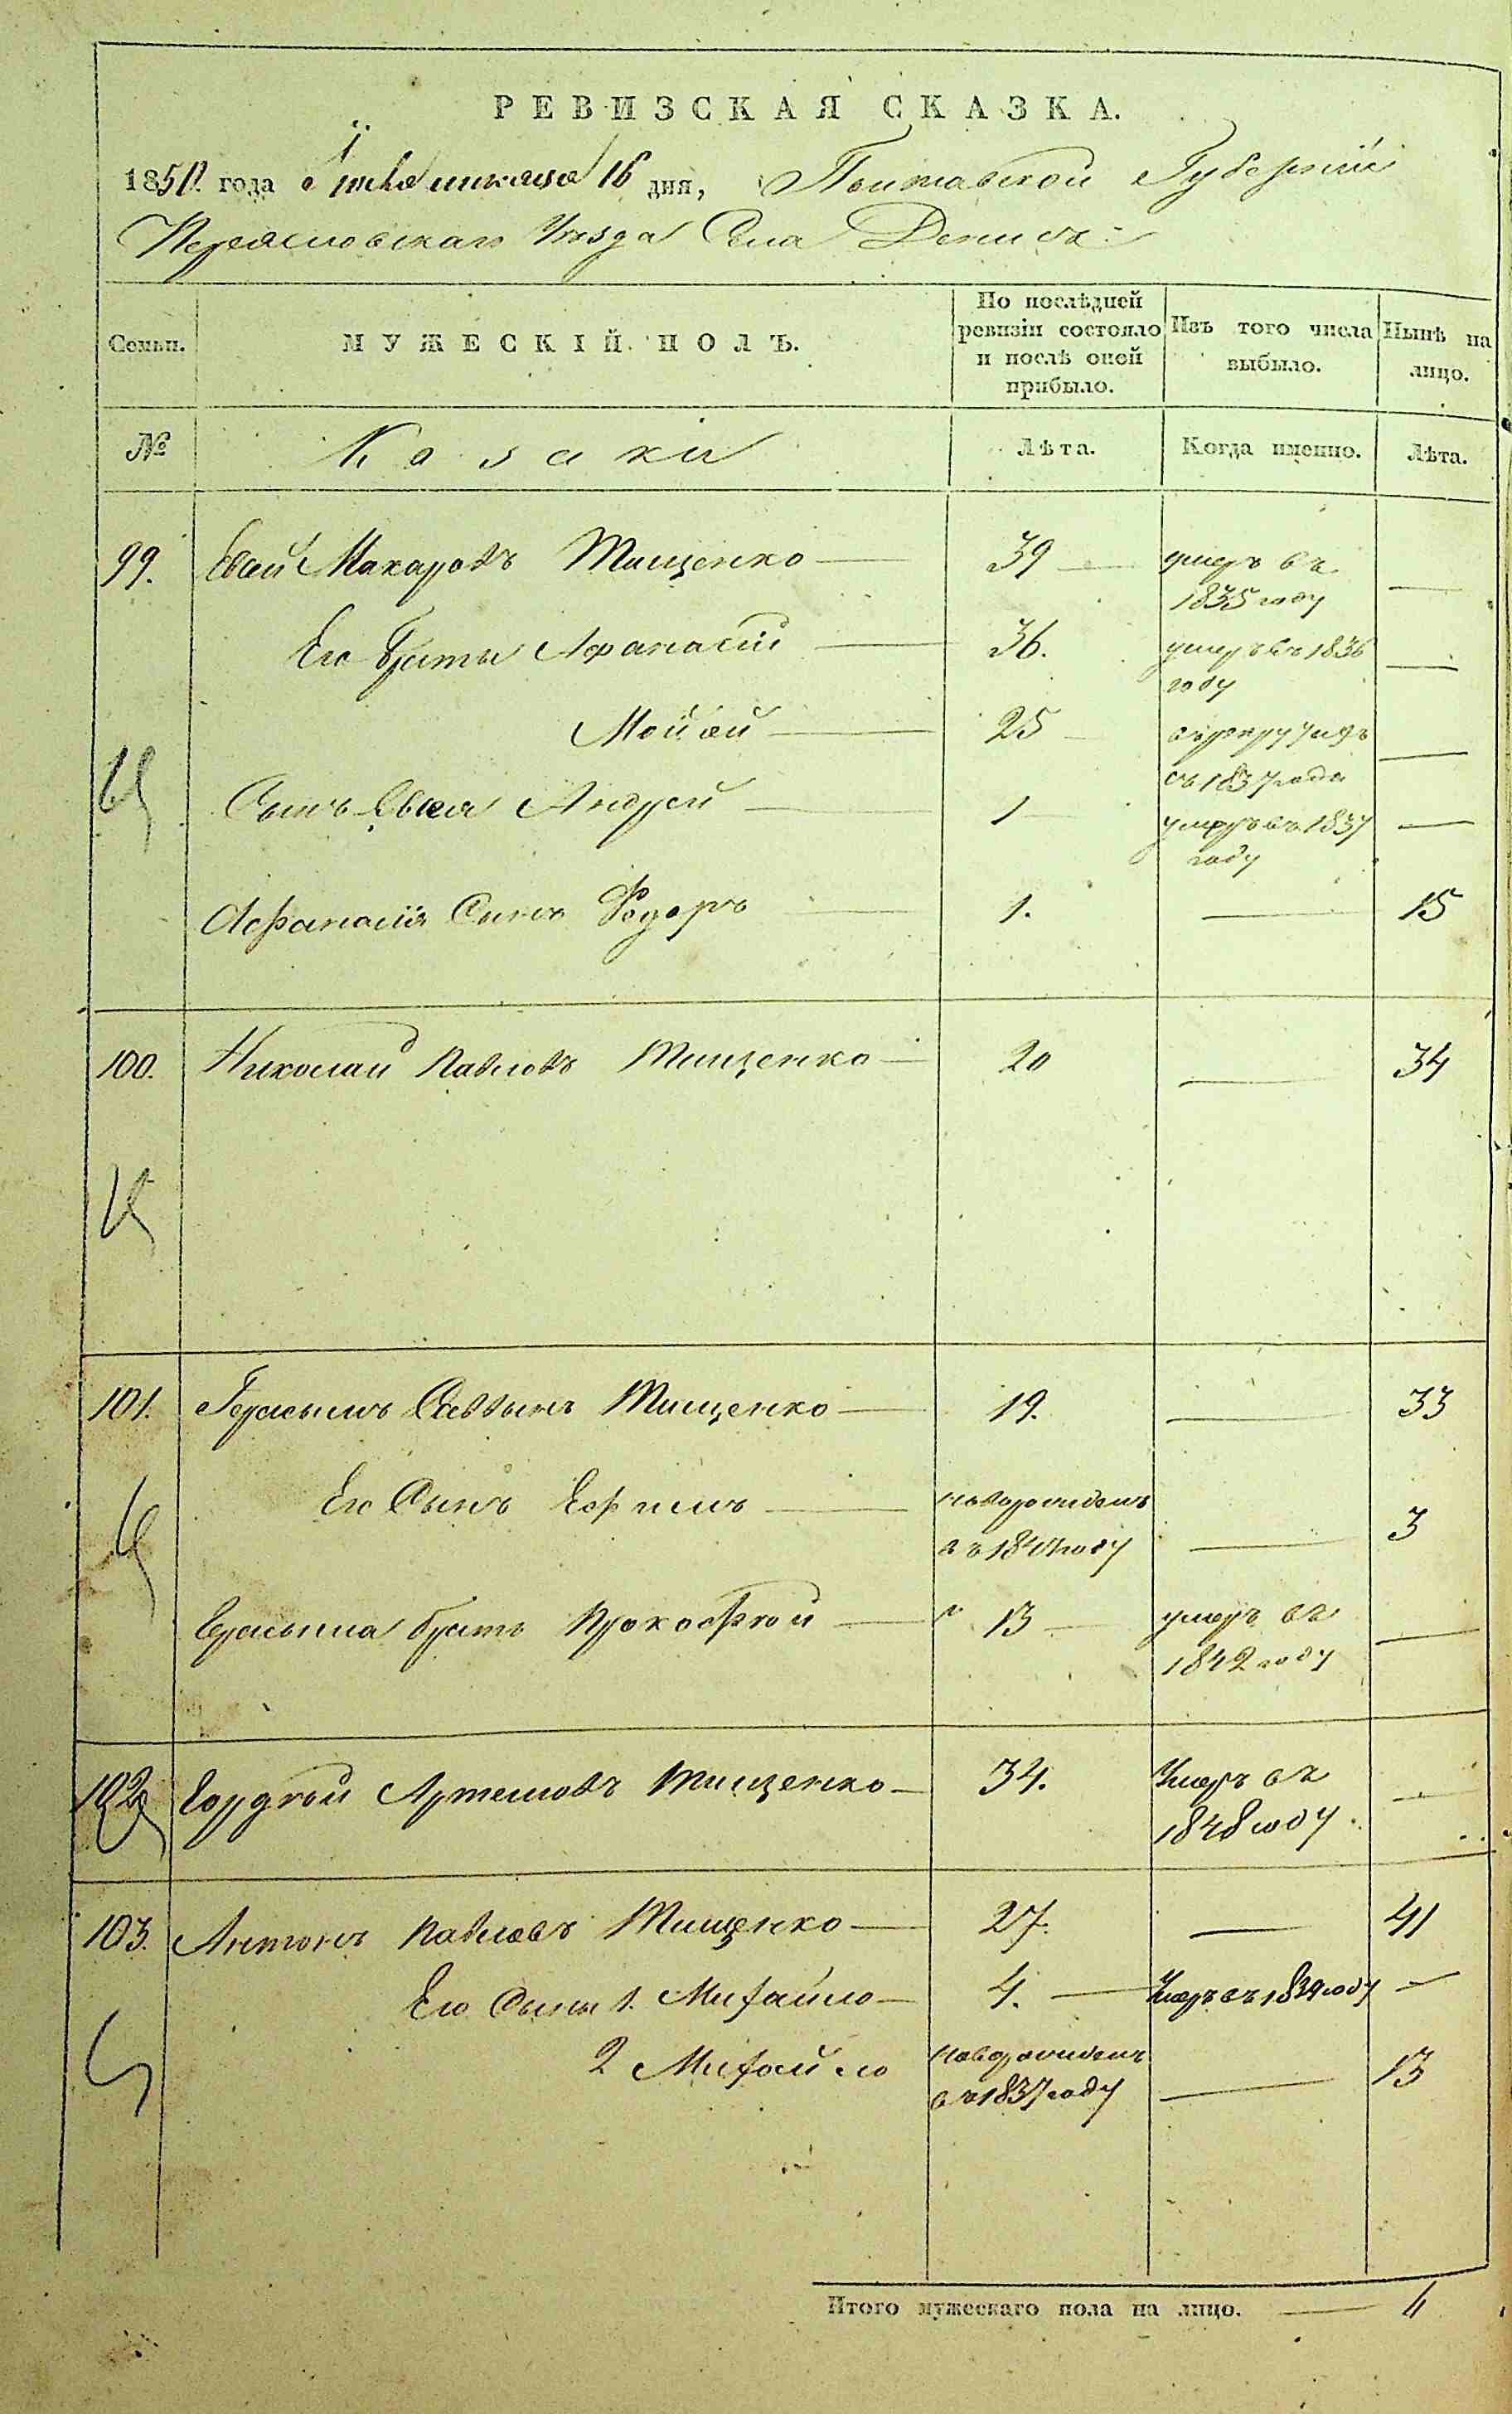 РЕВИЗСКАЯ СКАЗКА.
1850. года Октября мѣсяца 16 дня, Полтавской Губерніи
Переяславскаго Уѣзда Села Денисъ
Семьи.
МУЖЕСКІЙ ПОЛЪ.
По послѣдней ревизіи состояло и послѣ оной прибыло.
Изъ того числа выбыло.
Нынѣ на лицо.
№
Козаки
Лѣта.
Когда именно.
Лѣта.
99. Макаровъ Тищенко — 39 — умеръ въ 1835 году —
Его братья Афанасій — 36. умеръ въ 1836 году —
Мойсей — 25 — въ 1837 года —
Сынъ Андрей — 1 — умеръ въ 1837 году —
Афанасія Сынъ Федоръ — 1. — 15
100. Николай Павловъ Тищенко — 20 — 34
101. Герасимъ Саввинъ Тищенко — 19. — 33
Его Сынъ Ефимъ — новорожденъ — 3
Герасима братъ Прокофей — 13 — умеръ въ 1842 году —
102. Гордей Артемовъ Тищенко — 34. Умеръ въ 1848 году. —
103. Антонъ Павловъ Тищенко — 27. — 41
Его Сыны 1. Михайло — 4. — Умеръ въ 1834 году —
2 Михайло новорожденъ въ 1837 году — 13
Итого мужескаго пола на лицо. —